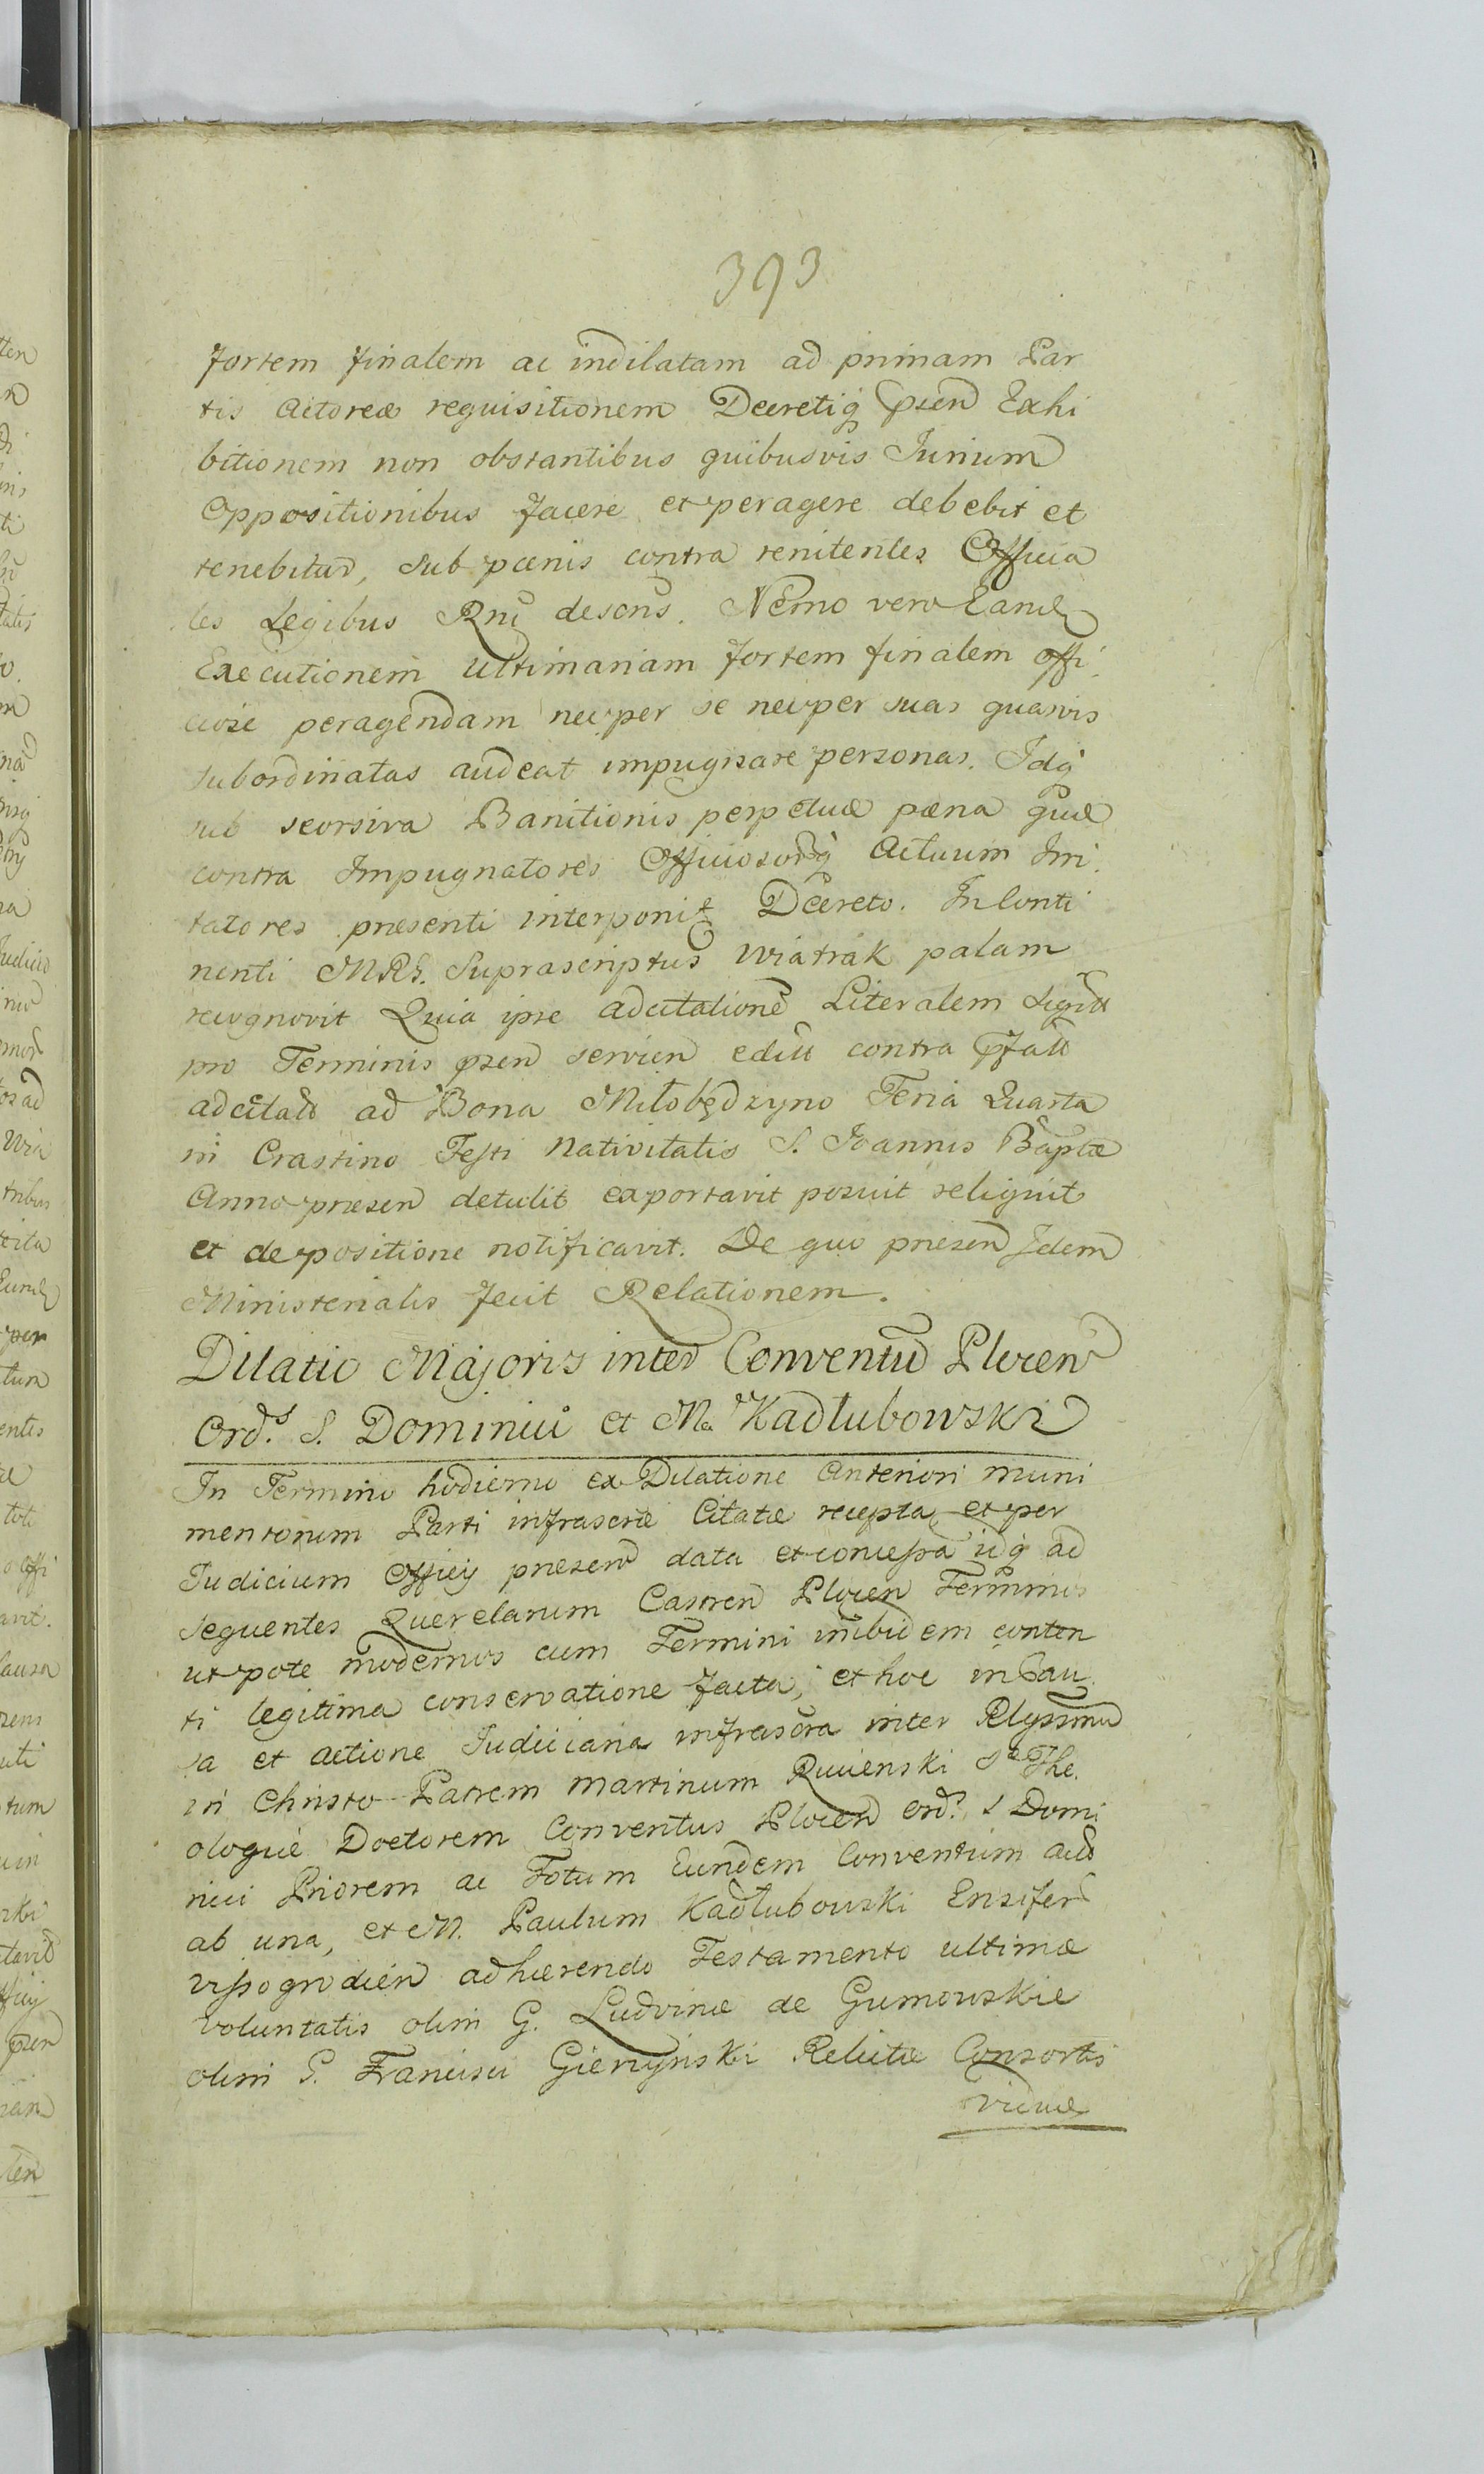 393
fortem finalem ac indilatam ad primam Par
tis Actoreæ requisitionem Decretiq̃ p̃sen Exhi
bitionem non obstantibus quibusvis Jurium
Oppositionibus facere et peragere debebit et
tenebitur, sub pœnis contra renitentes Officia
les Legibus Rni descris. Nemo vero Eand
Executionem ultimariam fortem finalem offi
ciose peragendam nec per se nec per suas quasvis
subordinatas audeat impugnare personas. Idq̃
sub seorsiva Banitionis perpetuæ pæna quæ
contra Impugnatores Officiosorq̃ Actuum Irri
tatores præsenti interponit Decreto. In Conti
nenti MRS. Suprascriptus Wiatrak palam
recognovit Quia ipse adcitatione Literalem
pro Terminis p̃sen servien edit contra p̃fato
adcitato ad Bona Miłobędzyno Feria Quarta
in Crastino Festi Nativitatis S. Joannis Baptæ
Anno præsen detulit exportavit posuit reliquit
et de positione notificavit. De quo præsen Idem
Ministerialis fecit Relationem.
Dilatio Majoris inter Conventu Plocen
Ord.s S. Dominici et M. Kadłubowski
In Termino hodierno ex Dilatione Anteriori muni
mentorum Parti infrascræ Citatæ recepta et per
Judicium Officij præsen data et concessa idq̃ ad
sequentes Querelarum Castren Plocen Terminos
ut pote modernos cum Termini inibidem conten
ti legitima conservatione facta, et hoc in Cau
sa et actione Judiciaria infrascra inter
in Christo Patrem Martinum Rucienski S. The
ologiæ Doctorem Conventus Plocen Ord. S Domi
nici Priorem ac Totum Eundem Conventum
ab una, et M. Paulum Kadłubowski Ensifer
Vissogrodien adhærendo Testamento ultimæ
voluntatis olim G. Ludvinæ de Gumowskie
olim G. Francisci Relictæ Consortis
viduæ